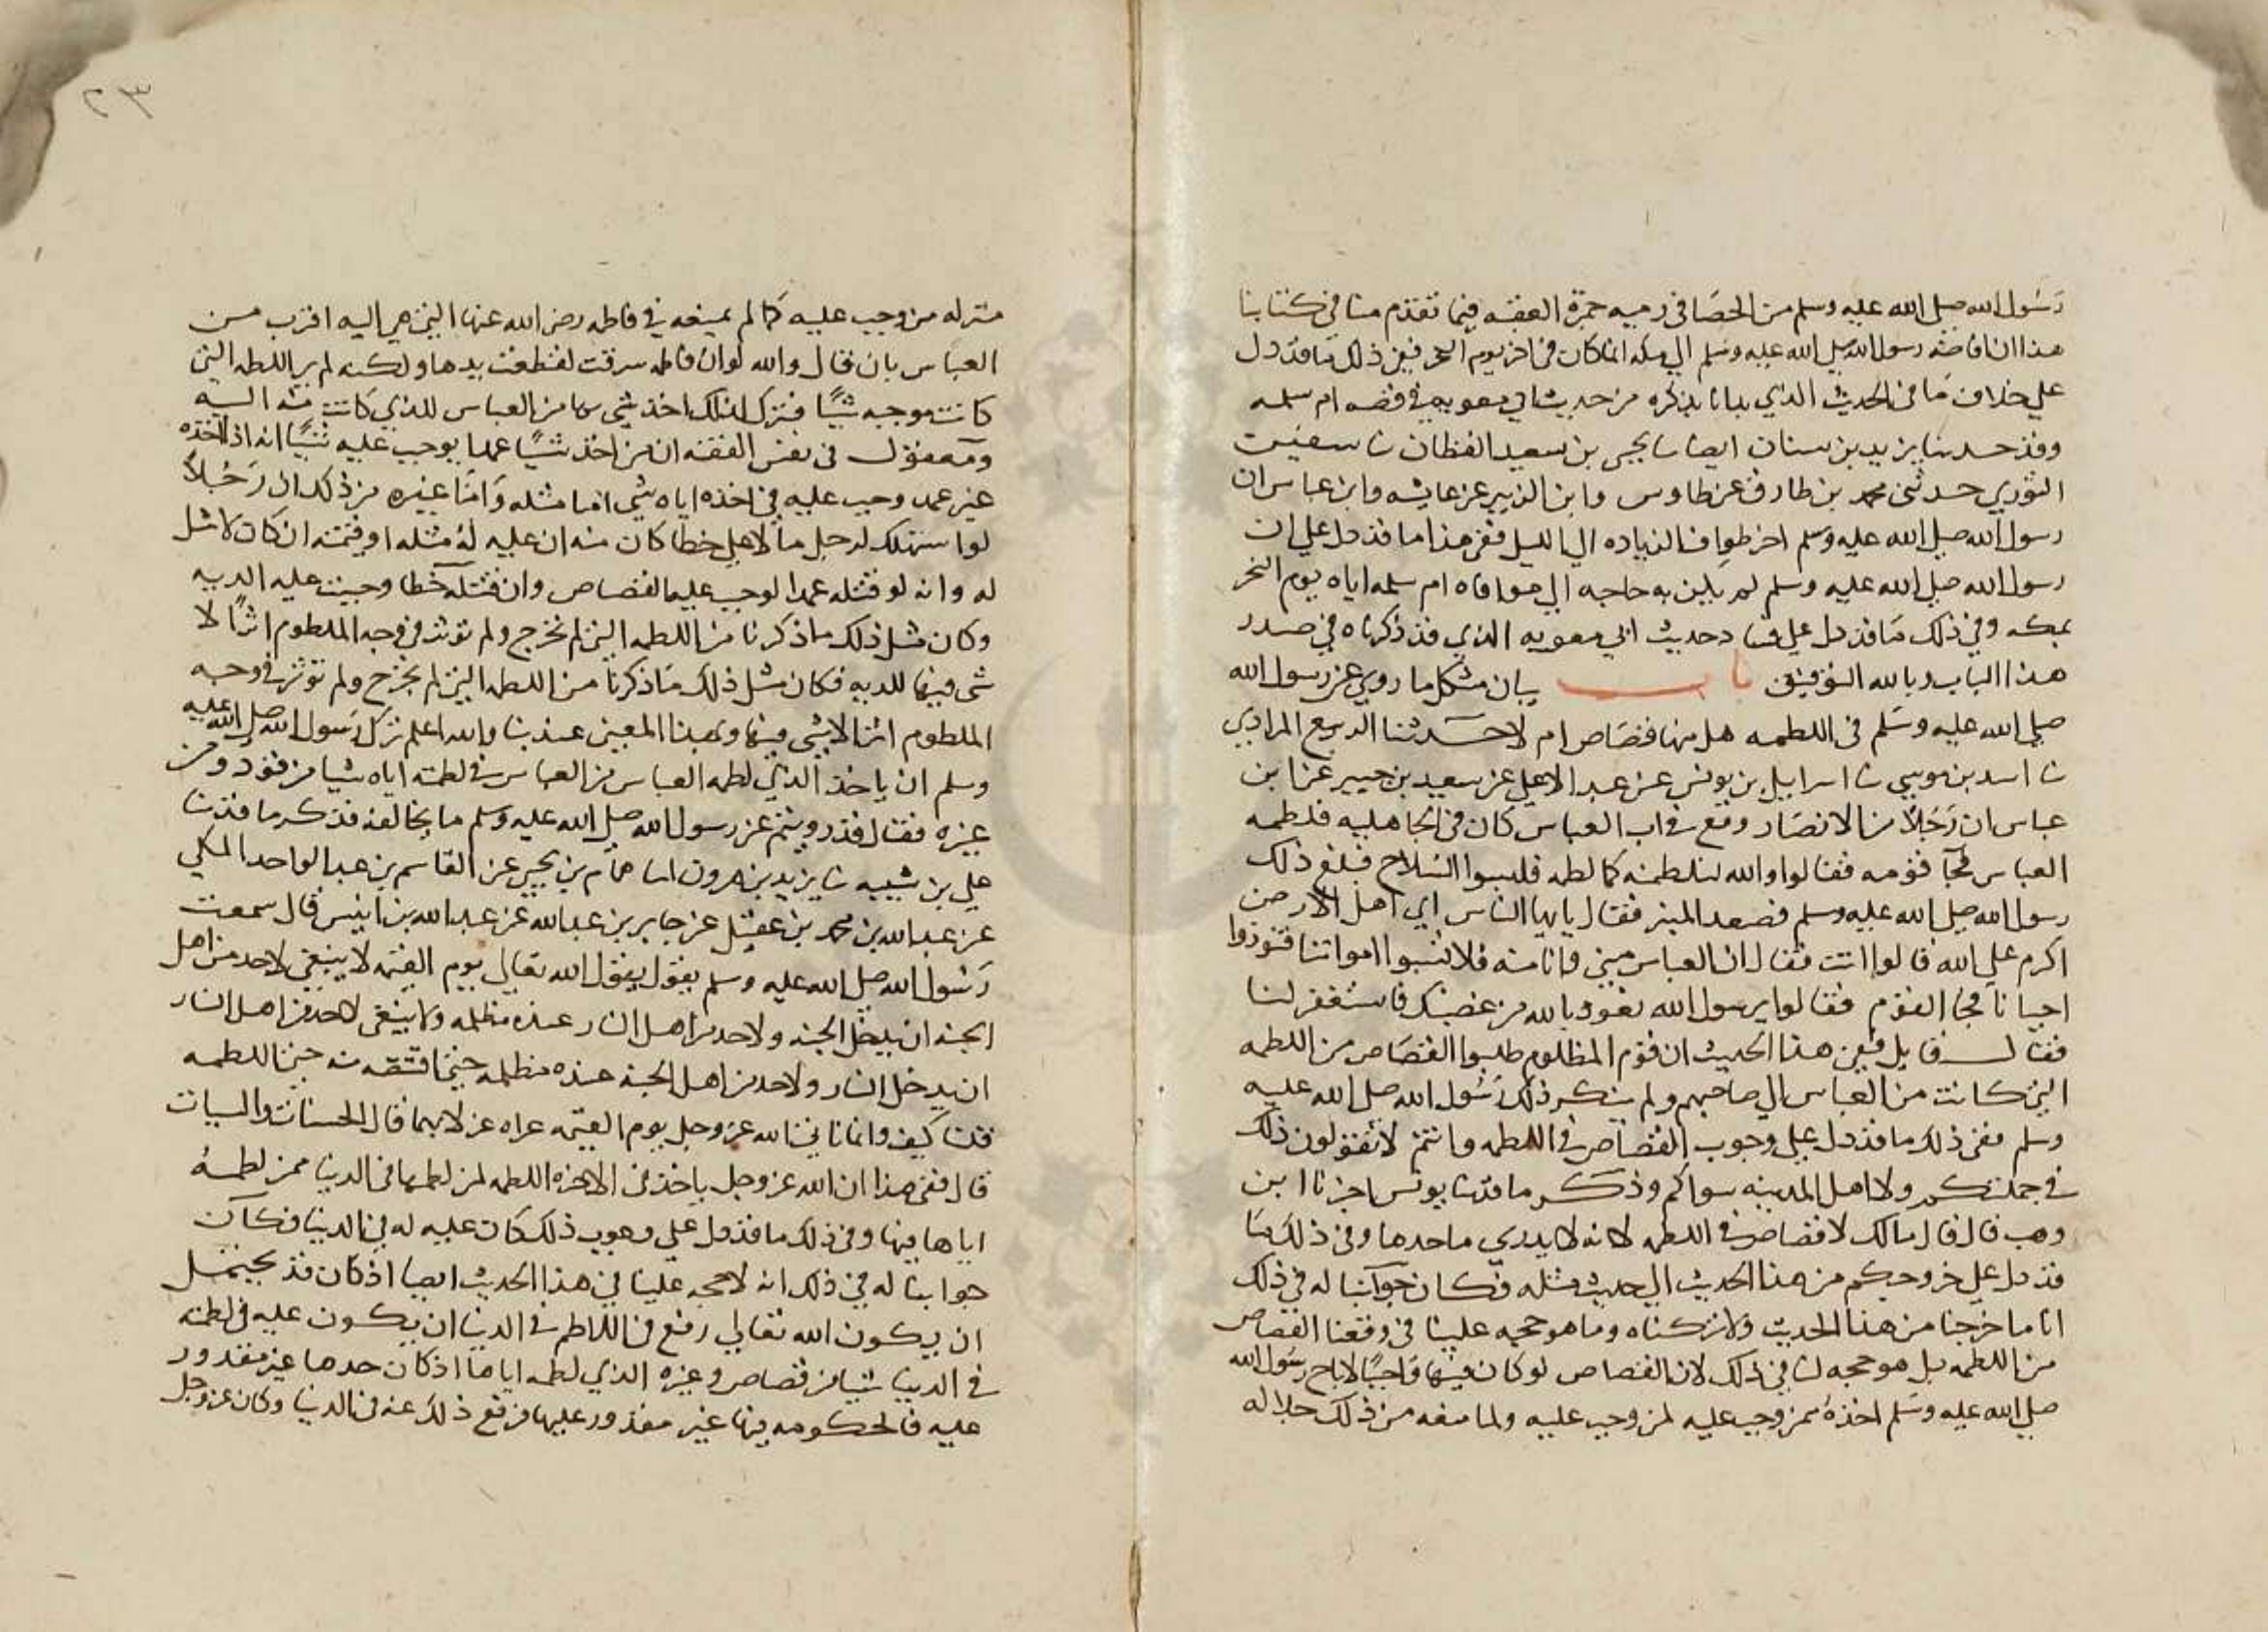 رسول الله صلى الله عليه وسلم من الحصا في رميه جمرة العقبه فيما تقدم منا في كتابنا
هذا ان افاضته رسول الله صلى الله عليه وسلم الي مكه انما كانت في اخر يوم النحر ففي ذلك ما قد دل
علي خلاف ما في الحديث الذي بدانا بذكره من حديث ابي معويه في قصه ام سلمه
وقد حدثنا يزيد بن سنان ايضا نا يحيى بن سعيد القطان نا سفين
الثوري حدثني محمد بن طارق عن طاوس وابن الزبير عن عايشه وابن عباس ان
رسول الله صلى الله عليه وسلم اخر طواف الزياده الي الليل ففي هذا ما قد دل علي ان
رسول الله صلى الله عليه وسلم لم يكن به حاجه الي موافاه ام سلمه اياه يوم النحر
بمكه وفي ذلك ما قد دل علي فساد حديث ابي معويه الذي قد ذكرناه في صدر
هذا الباب وبالله التوفيق باب بيان مشكل ما روي عن رسول الله
صلى الله عليه وسلم في اللطمه هل فيها قصاص ام لا حدثنا الربيع المرادي
نا اسد بن موسي نا اسرايل بن يونس عن عبد الاعلى عن سعيد بن جبير عن ابن
عباس ان رجلا من الانصار وقع في اب العباس كان في الجاهليه فلطمه
العباس فجا قومه فقالوا والله لنلطمنه كما لطمه فلبسوا السلاح فبلغ ذلك
رسول الله صلى الله عليه وسلم فصعد المنبر فقال يايها الناس اي اهل الارض
اكرم علي الله قالوا انت فقال ان العباس مني وانا منه فلا تسبوا امواتنا فتوذوا
احيانا فجا القوم فقالوا يرسول الله نعوذ بالله من غضبك فاستغفر لنا
فقال قايل ففي هذا الحديث ان قوم المظلوم طلبوا القصاص من اللطمه
التي كانت من العباس الي صاحبهم ولم ينكر ذلك رسول الله صلى الله عليه
وسلم ففي ذلك ما قد دل علي وجوب القصاص في اللطمه وانتم لا تقولون ذلك
في جملتكم ولا اهل المدينه سواكم وذكر ما قد نا يونس اخبرنا ابن
وهب قال قال مالك لا قصاص في اللطمه لانه لا يدري ما حدها وفي ذلك ما
قد دل علي خروجكم من هذا الحديث الي حديث مثله فكان جوابنا له في ذلك
انا ما خرجنا من هذا الحديث ولا تركناه وما هو حجه علينا في دفعنا القصاص
من اللطمه بل هو حجه لنا في ذلك لان القصاص لو كان فيها واجبا لاباح رسول الله
صلى الله عليه وسلم اخذه ممن وجب عليه لمن وجب عليه ولما منعه من ذلك جلاله
٢٣
منزله من وجب عليه كما لم يمنعه في فاطمه رضى الله عنها التي هي اليه اقرب من
العباس بان قال والله لو ان فاطمه سرقت لقطعت يدها ولكنه لم ير اللطمه التي
كانت موجبه شيئا فترك لذلك اخذ شي بها من العباس للذي كانت منه اليه
ومعقول في نفس الفقه ان من اخذ شيئا عمدا يوجب عليه شيئا انه اذا اخذه
غير عمد وجب عليه في اخذه اياه شي اما مثله واما غيره من ذلك ان رجلا
لو استهلك لرجل مالا علي خطا كان منه ان عليه له مثله او قيمته ان كان لا مثل
له وانه لو قتله عمدا لوجب عليه القصاص وان قتله خطا وجبت عليه الديه
وكان مثل ذلك ما ذكرنا من اللطمه التي لم تجرح ولم توثر في وجه الملطوم اثرا لا
شي فيها للديه فكان مثل ذلك ما ذكرنا من اللطمه التي لم تجرح ولم توثر في وجه
الملطوم اثرا لا شي فيها وبهذا المعنى عندنا والله اعلم ترك رسول الله صلى الله عليه
وسلم ان ياخذ الذي لطمه العباس من العباس في لطمته اياه شيا من قود ومن
غيره فقال قد رويتم عن رسول الله صلى الله عليه وسلم ما يخالفه فذكر ما قد نا
علي بن شيبه نا يزيد بن هرون انا همام بن يحيى عن القاسم بن عبد الواحد المكي
عن عبد الله بن محمد بن عقيل عن جابر بن عبد الله عن عبد الله بن انيس قال سمعت
رسول الله صلى الله عليه وسلم يقول يقول الله تعالي يوم القيمه لا ينبغي لاحد من اهل
الجنه ان يدخل الجنه ولاحد من اهل النار عنده مظلمه ولا ينبغي لاحد من اهل النار
ان يدخل النار ولاحد من اهل الجنه عنده مظلمه حتي اقتصه منه حتي اللطمه
قلنا كيف وانما ناتي الله عز وجل يوم القيمه عراه غرلا بهما قال الحسنات والسيات
قال ففي هذا ان الله عز وجل ياخذ في الاخره اللطمه لمن لطمها في الدنيا ممن لطمه
اياها فيها وفي ذلك ما قد دل علي وجوب ذلك كان عليه له في الدنيا فكان
جوابنا له في ذلك انه لا حجه علينا في هذا الحديث ايضا اذ كان قد يحتمل
ان يكون الله تعالي رفع عن اللاطم في الدنيا ان يكون عليه في لطمته
في الدنيا شيا من قصاص وغيره الذي لطمه اياها اذ كان حدها غير مقدور
عليه فالحكومه فيها غير مقدور عليها فرفع ذلك عنه في الدنيا وكان عز وجل